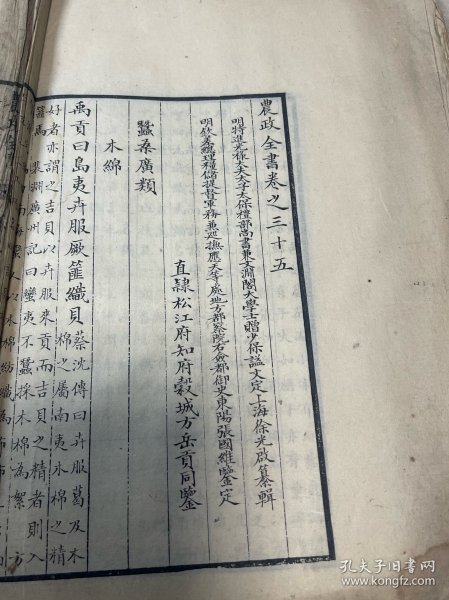 農政全書卷之三十五
明特進光祿大夫太子太保禮部尚書兼文淵閣大學士贈少保諡文定上海徐光啟纂輯
明欽差總理糧儲提督軍務兼巡撫應天等處地方都察院右僉都御史東陽張國維鑒定
直隸松江府知府穀城方岳貢同鑒
蠶桑廣類
木綿
禹貢曰島夷卉服厥篚織貝蔡沈傳曰卉服葛及木
棉之屬南夷木棉之精
好者亦謂之吉貝以卉服來貢而吉貝之精者則入
裴淵廣州記曰蠻夷不蠶採木綿為絮
孔夫子旧书网
https://www.kongfz.com